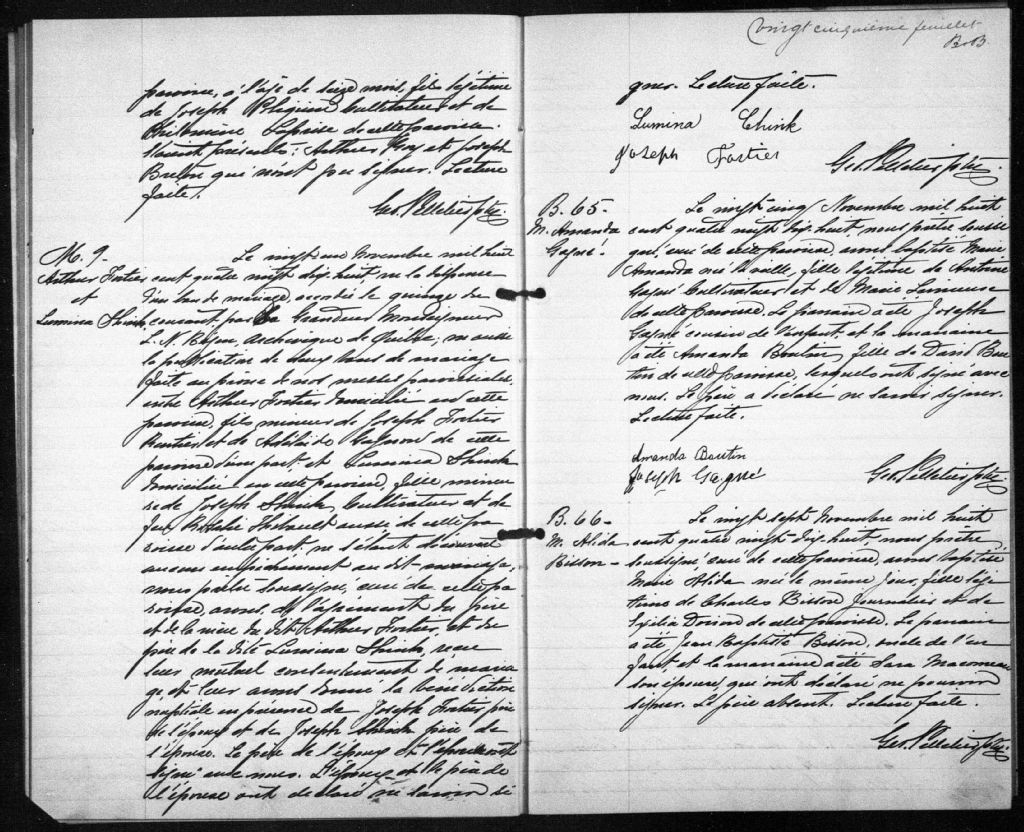 paroisse, à l'âge de seize mois, fils légitime
de Joseph cultivateur et de
Philomène de cette paroisse.
Etaient présents: Arthur Roy et Joseph
Breton qui n'ont pu signer. Lecture
faite.
Geo. Pelletier Ptre
M. 9-
Arthur Fortier
et
Lumina Shink
Le vingt une Novembre mil huit
cent quatre vingt dix-huit, vu la dispense
d'un ban de mariage, accordée le quinze du
courant, par Sa Grandeur Monseigneur
L. N. Bégin, Archevêque de Québec, vu aussi
la publication de deux bans de mariage
faite au prône de nos messes paroissiales,
entre Arthur Fortier domicilié en cette
paroisse, fils mineur de Joseph Fortier
Rentier et de Adélaïde de cette
paroisse d'une part; et Lumina Shink
domiciliée en cette paroisse, fille mineu
re de Joseph Shink, Cultivateur et de
feu aussi de cette pa
roisse d'autre part; ne s'étant découvert
aucun empêchement au dit mariage,
nous prêtre soussigné, curé de cette pa
roisse, avons, du père
et de la mère du dit Arthur Fortier, et du
père de la dite Lumina Shink, reçu
leur mutuel consentement de maria
ge et leur avons donné la bénédiction
nuptiale en présence de Joseph Fortier, père
de l'époux et de Joseph Shink père de
l'épouse. Le père de l'époux et l'épouse ont
signé avec nous. L'époux et le père de
l'épouse ont déclaré ne savoir si
Vingt cinquième feuillet
B.B.
gner. Lecture faite.
Lumina Chink
Joseph Fortier
Geo. Pelletier Ptre
B. 65-
M. Amanda
Gagné.
Le vingt cinq Novembre mil huit
cent quatre vingt dix-huit nous prêtre soussi
gné, curé de cette paroisse, avons baptisé Marie
Amanda née la veille, fille légitime de Antoine
Gagné Cultivateur et de Marie
de cette paroisse. Le parrain a été Joseph
Gagné cousin de l'enfant et la marraine
a été Amanda Boutin, fille de David Bou
tin de cette paroisse, lesquels ont signé avec
nous. Le père a déclaré ne savoir signer.
Lecture faite.
Amanda Boutin
Joseph Gagné
Geo. Pelletier Ptre
B. 66-
M. Alida
Bisson-
Le vingt sept Novembre mil huit
cent quatre vingt dix-huit, nous prêtre
soussigné, curé de cette paroisse, avons baptisé
Marie Alida née le même jour, fille légi
time de Charles Bisson Journalier et de
de cette paroisse. Le parrain
a été Jean Baptiste Bisson, oncle de l'en
fant et la marraine a été Sara
son épouse, qui ont déclaré ne pouvoir
signer. Le père absent. Lecture faite.
Geo. Pelletier Ptre